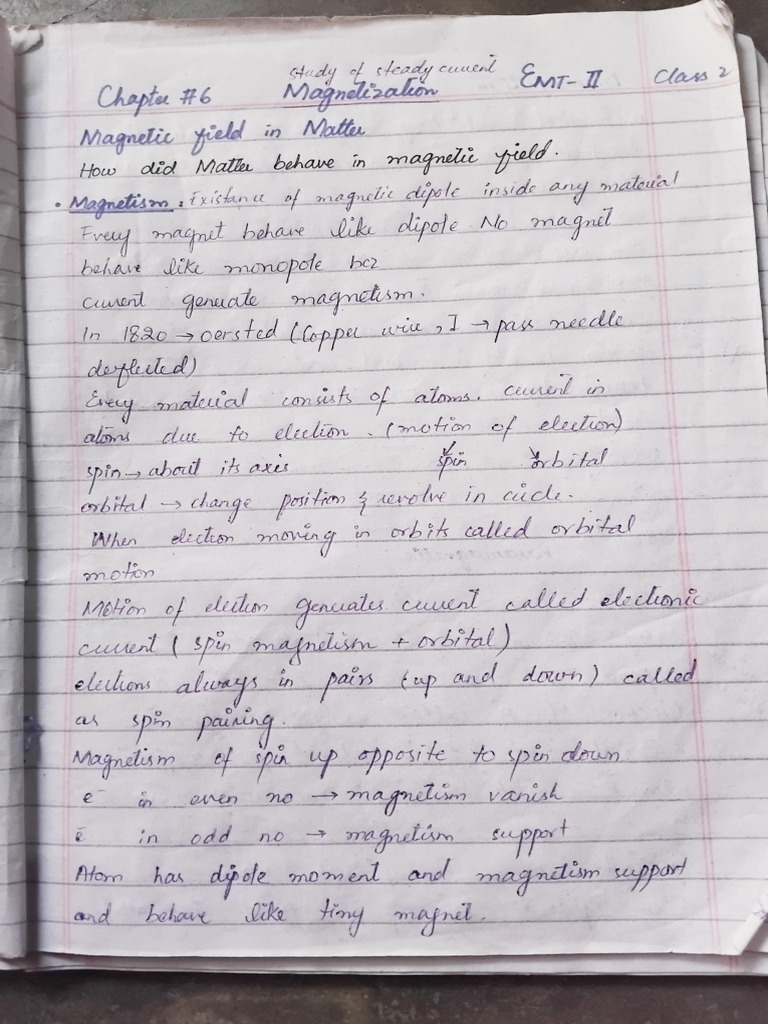 study of steady current
Chapter #6 Magnetization EMT-II Class 2
Magnetic field in Matter
How did Matter behave in magnetic field.
• Magnetism: Existance of magnetic dipole inside any material
Every magnet behave like dipole No magnet
behave like monopole bcz
current generate magnetism.
In 1820 → oersted (Copper wire, I → pass needle
deflected)
Every material consists of atoms. current in
atoms due to election. (motion of election)
spin → about its axis spin orbital
orbital → change position & revolve in circle.
When election moving in orbits called orbital
motion
Motion of election generates current called electionic
current ( spin magnetism + orbital)
elections always in pairs (up and down) called
as spin pairing.
Magnetism of spin up opposite to spin down
e⁻ in even no → magnetism vanish
e⁻ in odd no → magnetism support
Atom has dipole moment and magnetism support
and behave like tiny magnet.